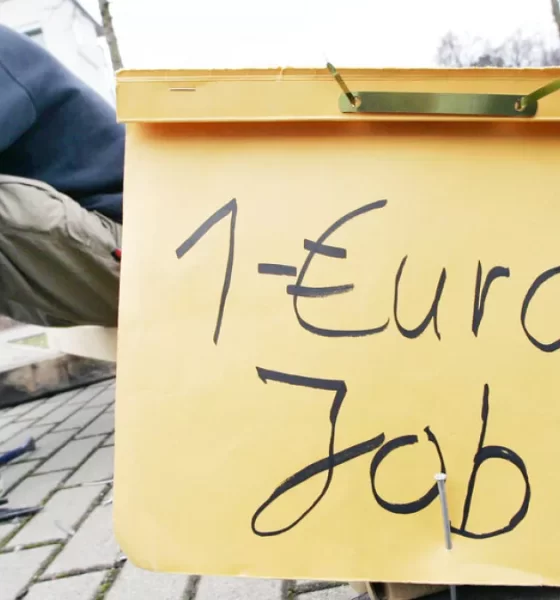 1-€uro
Job